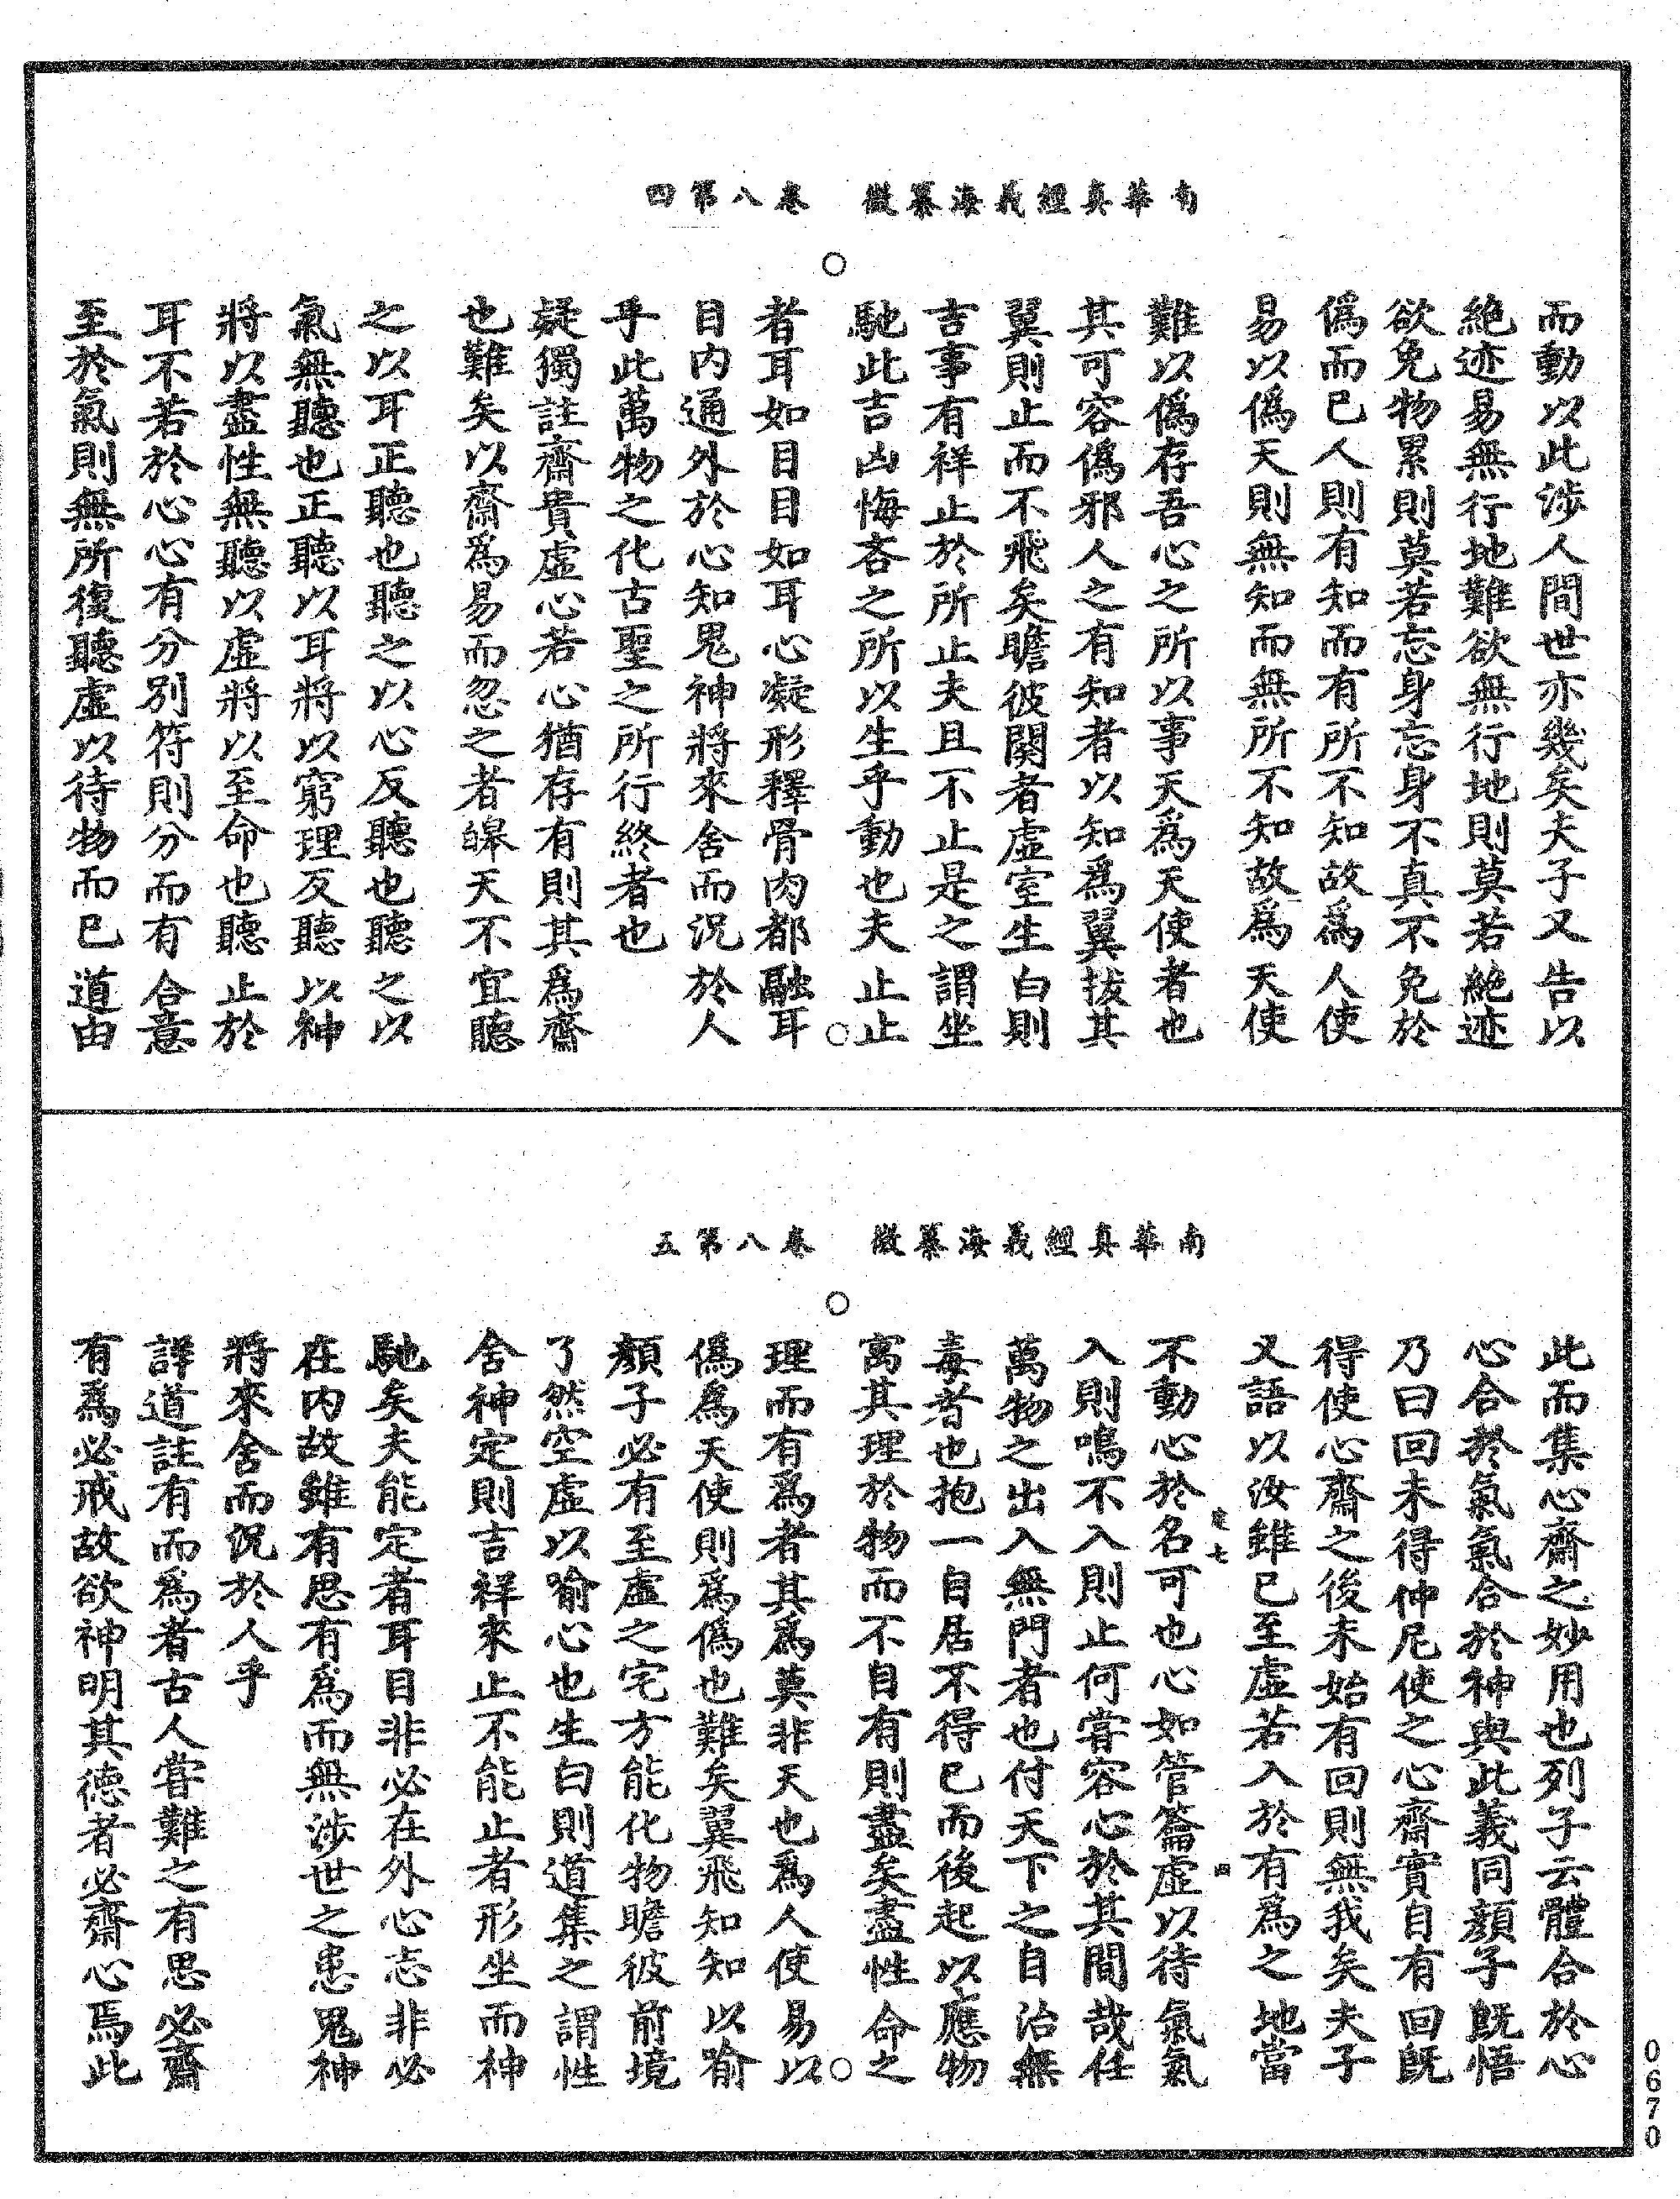 南華真經義海纂微　卷八第四
而動以此涉人間世亦幾矣夫子又告以
絶迹易無行地難欲無行地則莫若絶迹
欲免物累則莫若忘身忘身不真不免於
僞而已人則有知而有所不知故爲人使
易以僞天則無知而無所不知故爲天使
難以僞存吾心之所以事天爲天使者也
其可容僞邪人之有知者以知爲翼拔其
翼則止而不飛矣瞻彼闋者虛室生白則
吉事有祥止於所止夫且不止是之謂坐
馳此吉凶悔吝之所以生乎動也夫止止
○
○
者耳如目目如耳心凝形釋骨肉都融耳
目内通外於心知鬼神將來舍而況於人
乎此萬物之化古聖之所行終者也
疑獨註齋貴虛心若心猶存有則其爲齋
也難矣以齋爲易而忽之者皞天不宜聽
之以耳正聽也聽之以心反聽也聽之以
氣無聽也正聽以耳將以窮理反聽以神
將以盡性無聽以虛將以至命也聽止於
耳不若於心心有分別符則分而有合意
至於氣則無所復聽虛以待物而已道由
南華真經義海纂微　卷八第五
此而集心齋之妙用也列子云體合於心
心合於氣氣合於神與此義同顔子既悟
乃曰回未得仲尼使之心齋實自有回既
得使心齋之後未始有回則無我矣夫子
又語以汝雖已至虛若入於有爲之地當
七
不動心於名可也心如管籥虛以待氣氣
入則鳴不入則止何嘗容心於其間哉任
萬物之出入無門者也付天下之自治無
毒者也抱一自居不得已而後起以應物
寓其理於物而不自有則盡矣盡性命之
○
○
理而有爲者其爲莫非天也爲人使易以
僞爲天使則爲僞也難矣翼飛知知以喻
顔子必有至虛之宅方能化物瞻彼前境
了然空虛以喻心也生白則道集之謂性
舍神定則吉祥來止不能止者形坐而神
馳矣夫能定者耳目非必在外心志非必
在内故雖有思有爲而無涉世之患鬼神
將來舍而況於人乎
詳道註有而爲者古人嘗難之有思必齋
有爲必戒故欲神明其德者必齋心焉此
0670